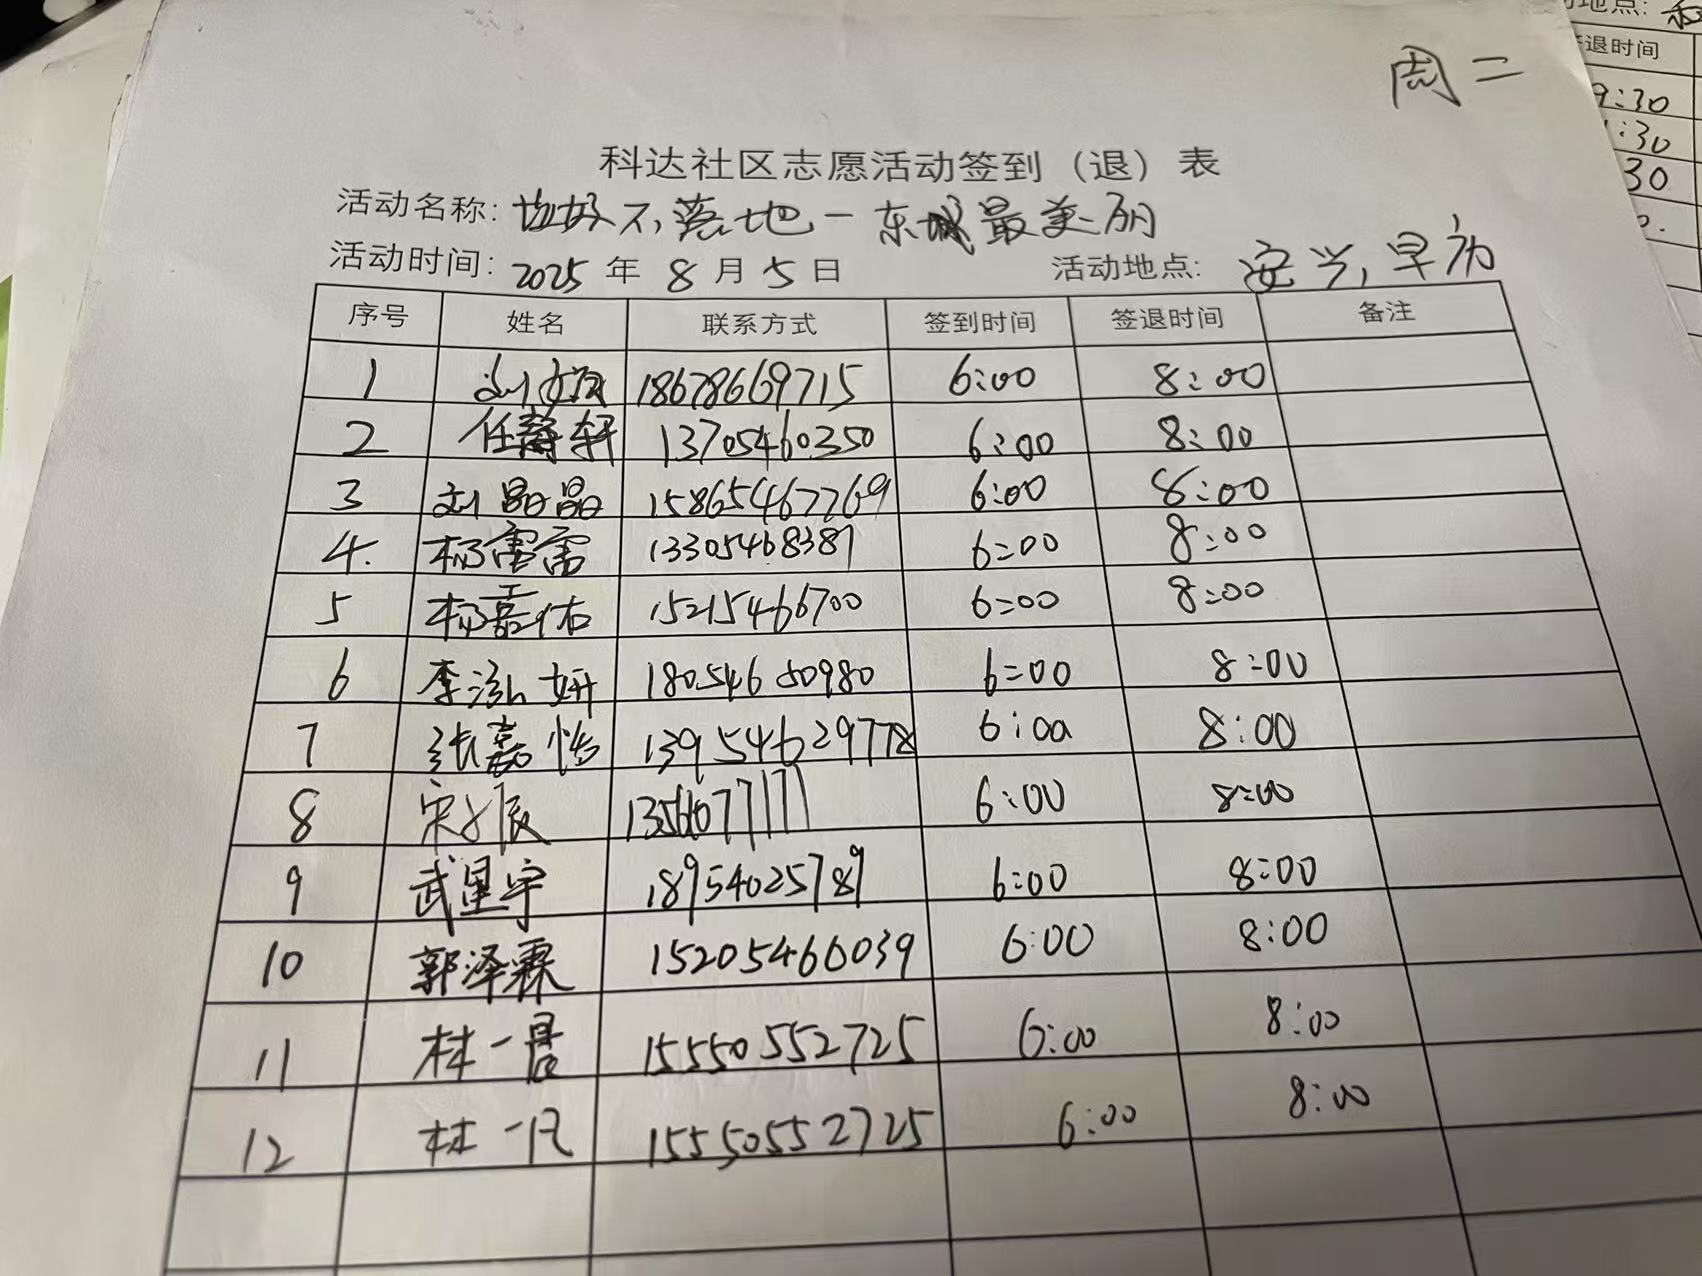 周二
科达社区志愿活动签到（退）表
活动名称: 垃圾不落地一东城最美丽
活动时间: 2025年8月5日 活动地点: 安兴,早市
序号 姓名 联系方式 签到时间 签退时间 备注
1 刘 18678669715 6:00 8:00
2 任静轩 13705460350 6:00 8:00
3 刘晶晶 15865467769 6:00 8:00
4. 杨雷雷 13305468387 6:00 8:00
5 杨嘉佑 15215466700 6:00 8:00
6 李泓妍 18054650980 6:00 8:00
7 张嘉怡 13954629778 6:00 8:00
8 宋 6:00 8:00
9 武星宇 18954025789 6:00 8:00
10 郭泽霖 15205466039 6:00 8:00
11 林一 15550552725 6:00 8:00
12 林一凡 15550552725 6:00 8:00
地点:
签退时间
9:30
:30
30